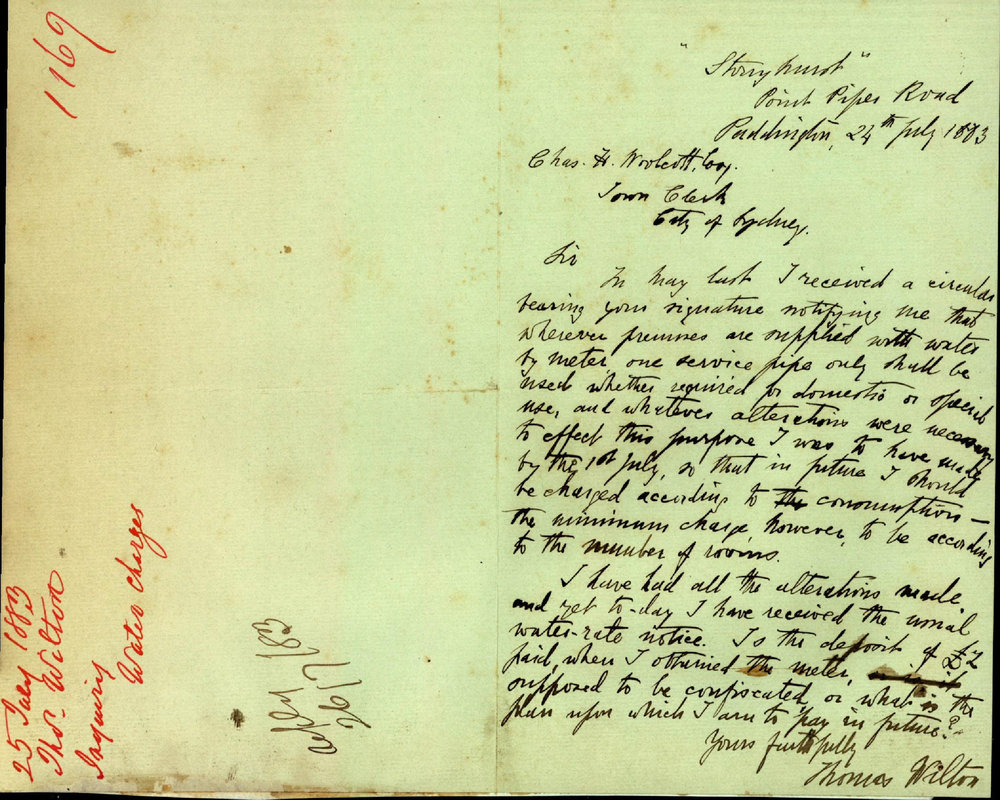 1169
25 July 1883
Thos. Wilton
Inquiry
Water Charges
26/7/83
"Stonyhurst"
Point Piper Road
Paddington, 24th July 1883
Chas. H. Woolcott, Esq.
Town Clerk
City of Sydney.
Sir
In May last I received a circular
bearing your signature notifying me that
wherever premises are supplied with water
by meter, one service pipe only shall be
used whether required for domestic or special
use, and whatever alterations were necessary
to effect this purpose I was to have made
by the 1st July, so that in future I should
be charged according to the consumption —
the minimum charge, however, to be according
to the number of rooms.
I have had all the alterations made
and yet to-day I have received the usual
water-rate notice. Is the deposit of £2
paid, when I obtained the meter,
supposed to be confiscated or what is the
plan upon which I am to pay in future?
Yours faithfully
Thomas Wilton